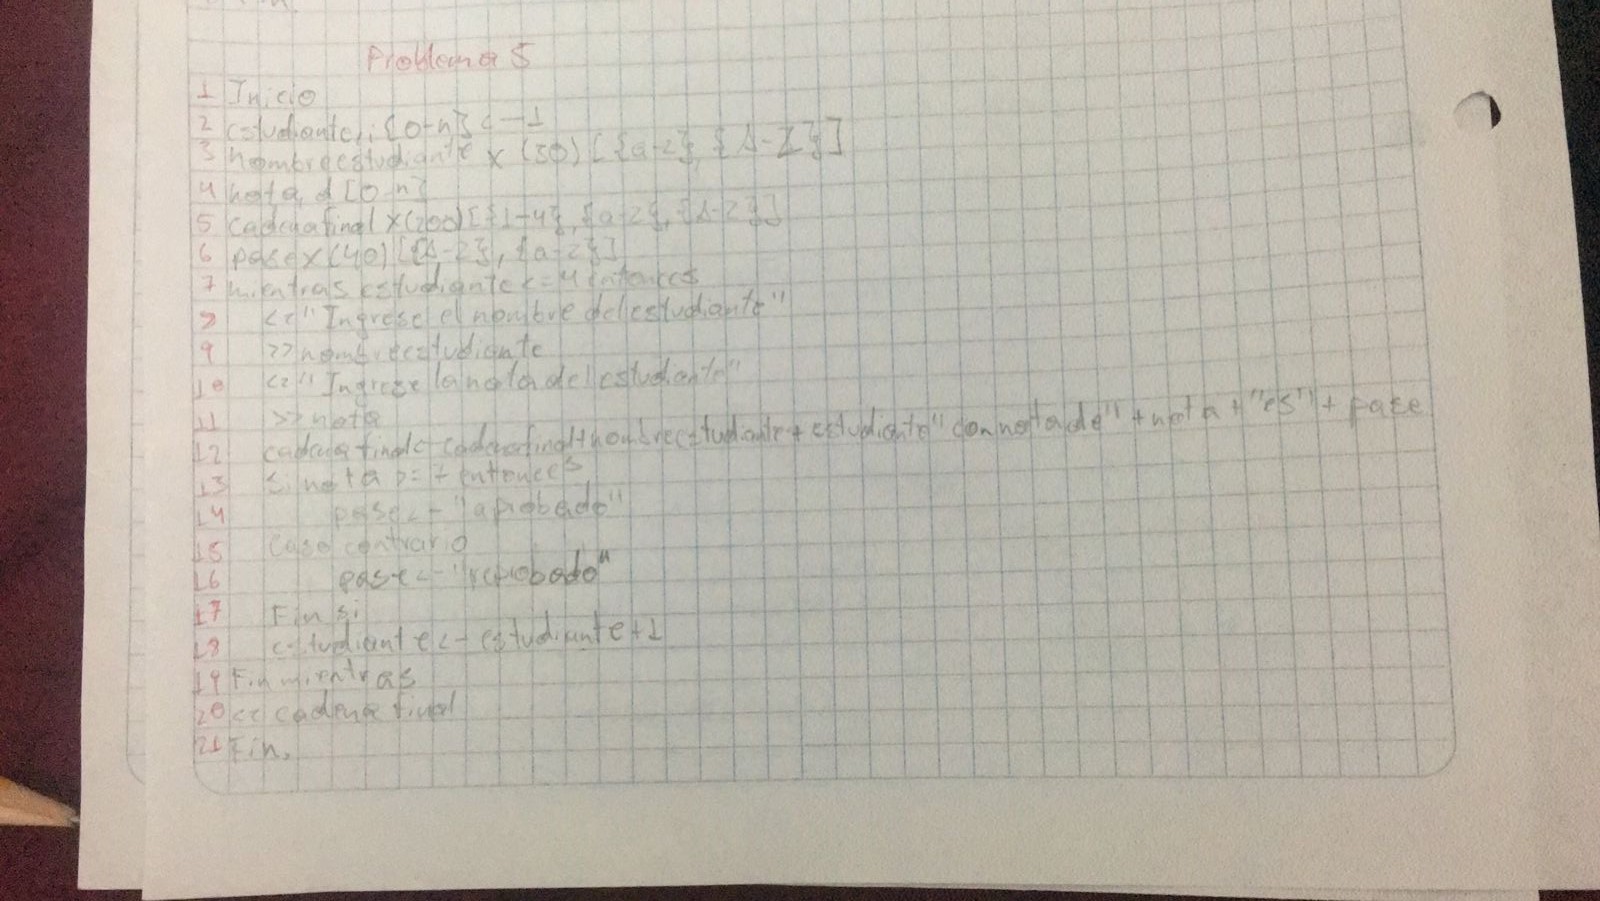 Problema 5
1 Inicio
2 estudiante, i {0-n} <-1
3 nombreestudiante x (30) [{a-z}, {A-Z}]
4 nota d [0-n]
5 cadenafinal x(200) [{1-4}, {a-z}, {A-Z}]
6 pase x(40) [{A-Z}, {a-z}]
7 mientras estudiante <= 4 entonces
8 << "Ingrese el nombre del estudiante"
9 >> nombreestudiante
10 << "Ingrese la nota del estudiante"
11 >> nota
12 cadenafinal< cadenafinal+nombreestudiante+estudiante"con nota de"+nota+"es"+pase
13 si nota >= 7 entonces
14 pase <- "aprobado"
15 Caso contrario
16 pase <- "reprobado"
17 Fin si
18 estudiante <- estudiante+1
19 Fin mientras
20 << cadena final
21 Fin.